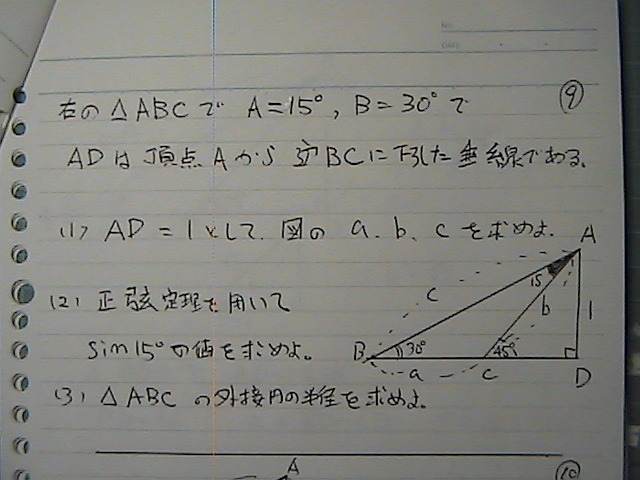 NO.
DATE
⑨
右の△ABCで A=15°, B=30°で
ADは頂点Aから辺BCに下ろした垂線である。
(1) AD=1として、図の a、b、cを求めよ。
(2) 正弦定理を用いて
sin15°の値を求めよ。
(3) △ABCの外接円の半径を求めよ。
A
c
15
b
1
B
30°
45°
a
C
D
A
⑩